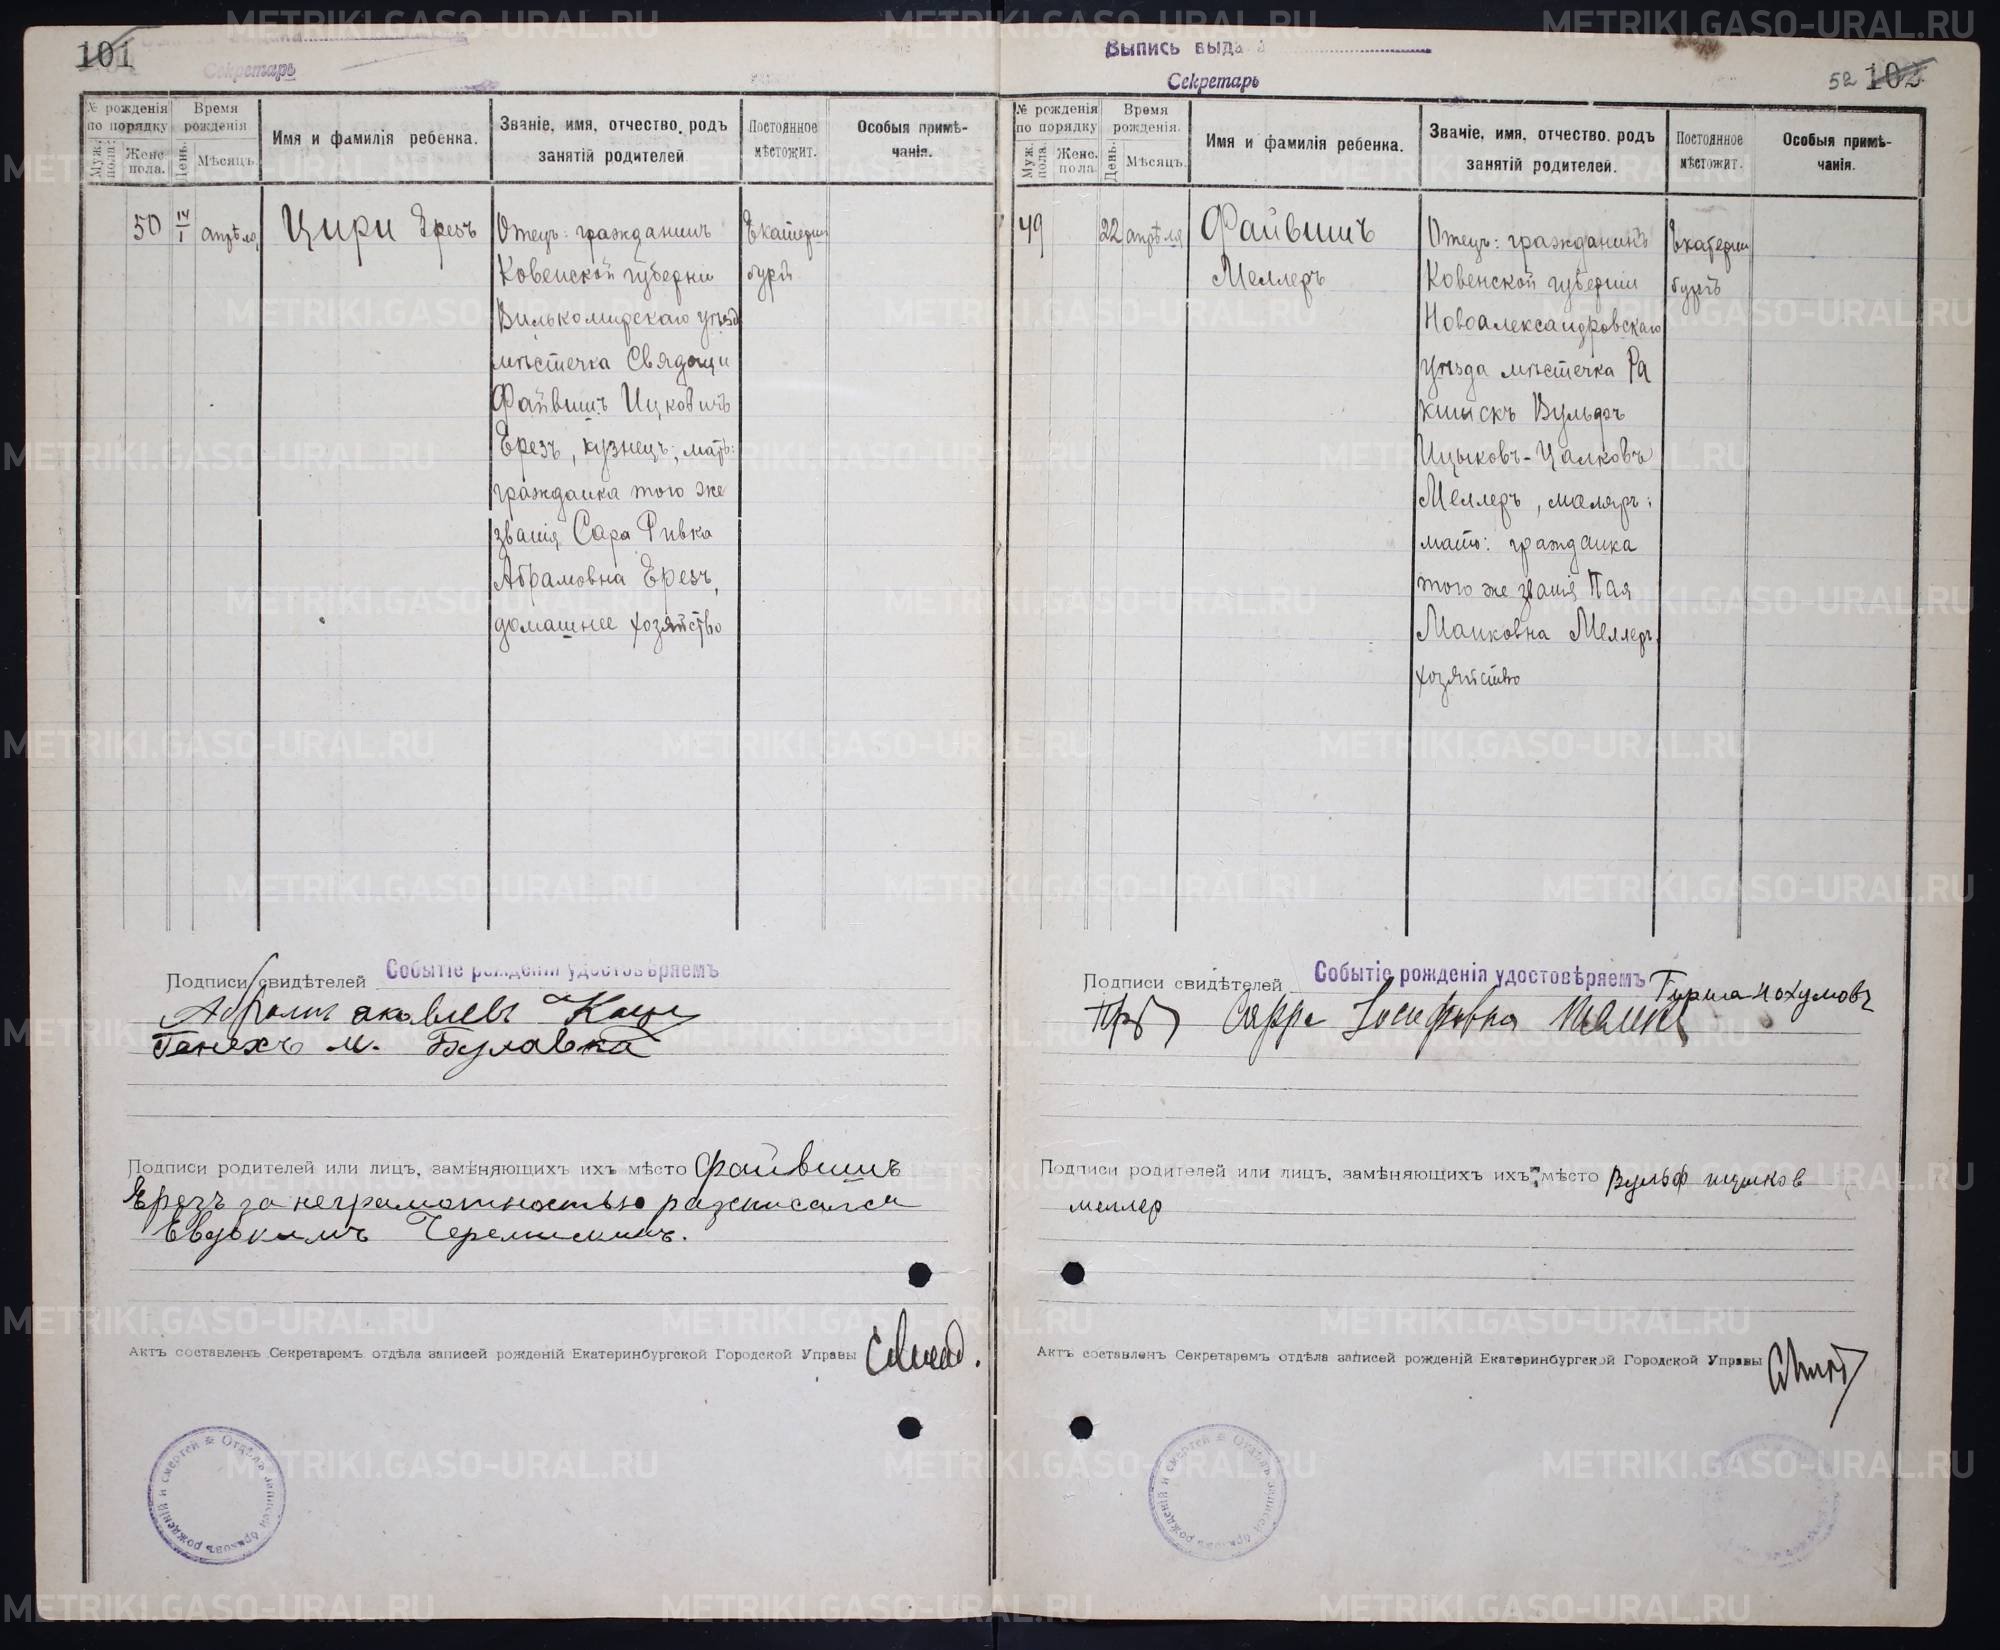 101
Секретарь
№ рожденія по порядку
Муж. пола.
Женс. пола.
Время рожденія
День.
Мѣсяцъ.
Имя и фамилія ребенка.
Званіе, имя, отчество, родъ занятій родителей
Постоянное мѣстожит.
Особыя примѣ-
чанія.
50
IV
I
апрѣля
Цири Ерезъ
Отецъ: гражданинъ
Ковенской губерніи
Вилькомирскаго уѣзд.
мѣстечка Свядощи
Файвишъ Ицковичъ
Ерезъ, кузнецъ; мать:
гражданка того же
званія Сара Ривка
Абрамовна Ерезъ,
домашнее хозяйство
Екатерин
бургъ
Подписи свидѣтелей
Событіе рожденія удостовѣряемъ
Абрамъ Яковлевъ Кацъ
Генехъ М. Булавка
Подписи родителей или лицъ, замѣняющихъ ихъ мѣсто Файвишъ
Ерезъ за неграмотностью расписался
Евдокимъ Черемискинъ.
Актъ составленъ Секретаремъ отдѣла записей рожденій Екатеринбургской Городской Управы
Отдѣлъ записей браковъ рожденій и смертей
Выпись выдана
Секретарь
52 102
№ рожденія по порядку
Муж. пола.
Женс. пола
Время рожденія.
День.
Мѣсяцъ.
Имя и фамилія ребенка.
Званіе, имя, отчество, родъ занятій родителей.
Постоянное мѣстожит.
Особыя примѣ-
чанія.
49
22
апрѣля
Файвишъ
Меллеръ
Отецъ: гражданинъ
Ковенской губерніи
Новоалександровскаго
уѣзда мѣстечка Ра
кишскъ Вульфъ
Ицыковъ-Цалковъ
Меллеръ, маляръ;
мать: гражданка
того же званія Пая
Манковна Меллеръ,
хозяйство
Екатерин
бургъ
Подписи свидѣтелей
Событіе рожденія удостовѣряемъ Гирша Нохумовъ
Сарра Іосифовна
Подписи родителей или лицъ, замѣняющихъ ихъ мѣсто Вульф ицыков
меллер
Актъ составленъ Секретаремъ отдѣла записей рожденій Екатеринбургской Городской Управы
Отдѣлъ записей браковъ рожденій и смертей
METRIKI.GASO-URAL.RU